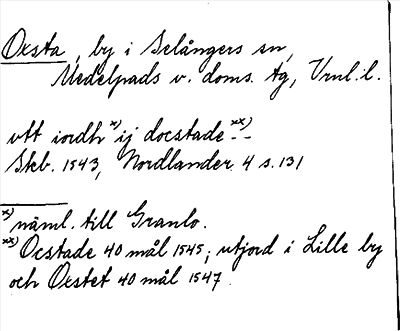 Oxsta, by i Selångers sn,
Medelpads v. doms. tg, Vrnl. l.
vtt iordh x) ij docstade xx) - -
Skb. 1543, Nordlander 4 s. 131
x) näml. till Granlo.
xx) Ocstade 40 mål 1545; utjord i Lille by
och Oxstet 40 mål 1547.